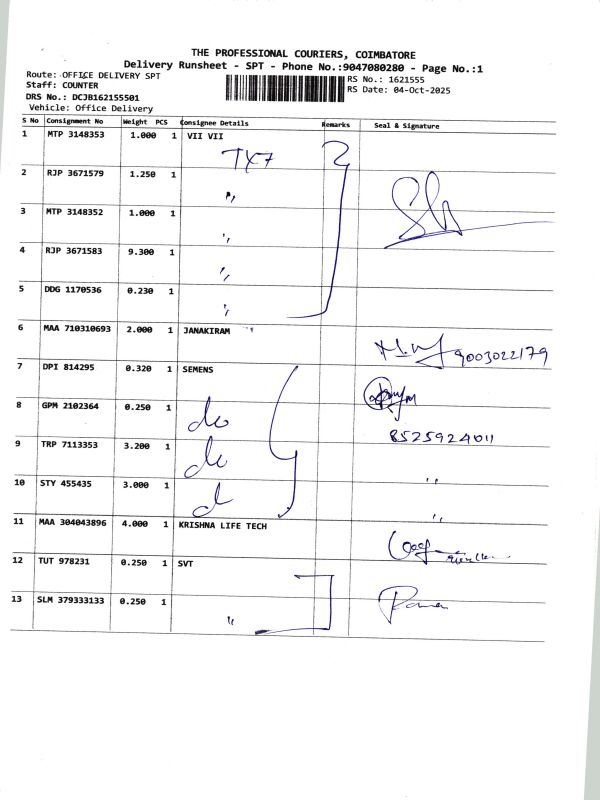 THE PROFESSIONAL COURIERS, COIMBATORE
Delivery Runsheet - SPT - Phone No.:9047080280 - Page No.:1
Route: OFFICE DELIVERY SPT
RS No.: 1621555
Staff: COUNTER
RS Date: 04-Oct-2025
DRS No.: DCJB162155501
Vehicle: Office Delivery
S No Consignment No Weight PCS Consignee Details Remarks Seal & Signature
1 MTP 3148353 1.000 1 VII VII
2 RJP 3671579 1.250 1 "
3 MTP 3148352 1.000 1 "
4 RJP 3671583 9.300 1 "
5 DDG 1170536 0.230 1 "
6 MAA 710310693 2.000 1 JANAKIRAM
9003022179
7 DPI 814295 0.320 1 SEMENS
8 GPM 2102364 0.250 1 do
8525924011
9 TRP 7113353 3.200 1 do "
10 STY 455435 3.000 1 d "
11 MAA 304043896 4.000 1 KRISHNA LIFE TECH
12 TUT 978231 0.250 1 SVT
13 SLM 379333133 0.250 1 "